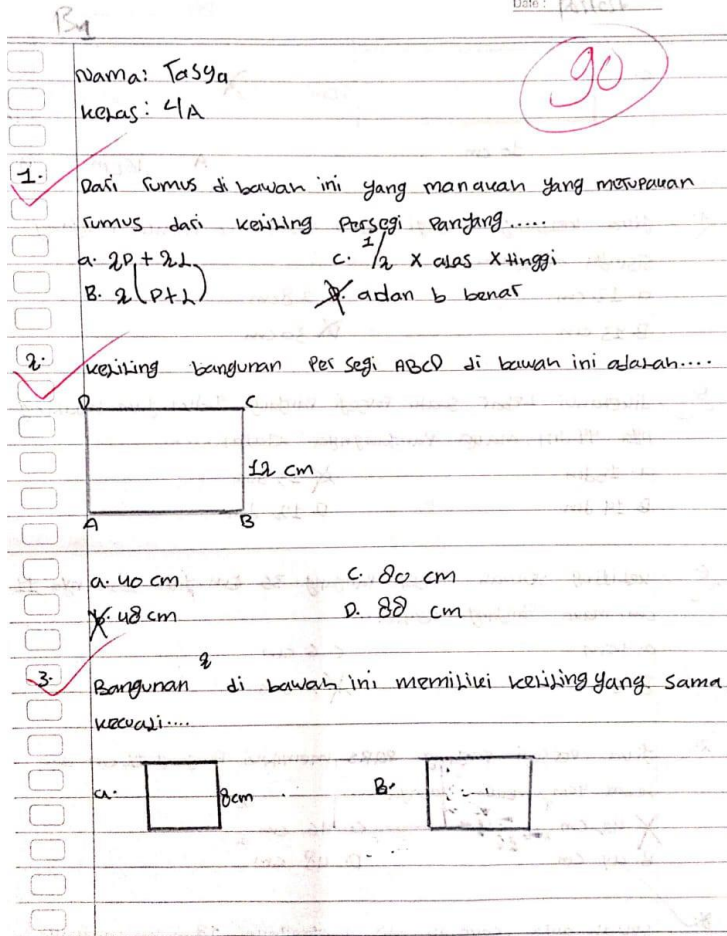 B1
Date:
90
Nama: Tasya
Kelas: 4A
1. Dari rumus di bawah ini yang manakah yang merupakan
rumus dari keliling Persegi Panjang.....
a. 2P + 2L
c. 1/2 x alas x tinggi
B. 2(P+L)
D. a dan b benar
2. Keliling bangunan Persegi ABCD di bawah ini adalah....
D
C
12 cm
A
B
a. 40 cm
c. 80 cm
b. 48 cm
D. 88 cm
3. Bangunan 2 di bawah ini memiliki keliling yang sama
kecuali....
a.
8cm
B.